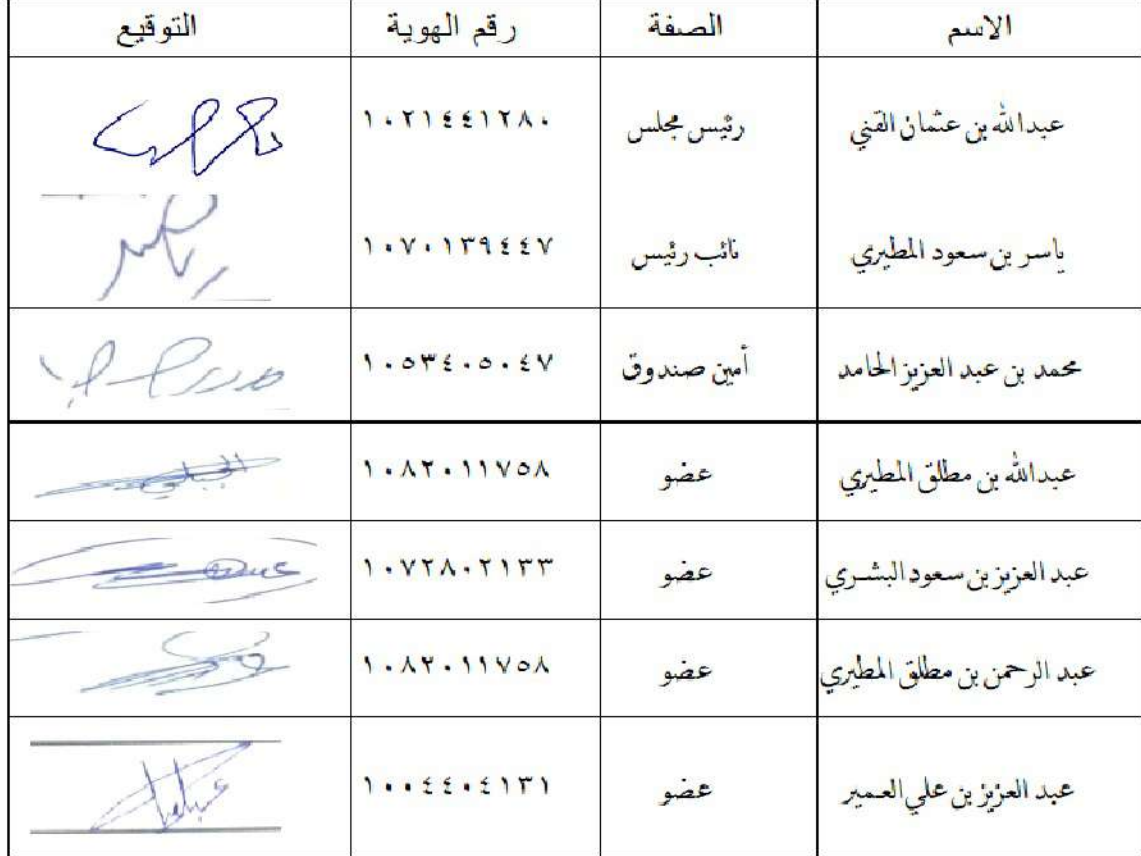 الاسم الصفة رقم الهوية التوقيع
عبدالله بن عثمان القني رئيس مجلس ١٠٢١٤٤١٢٨٠
ياسر بن سعود المطيري نائب رئيس ١٠٧٠١٣٩٤٤٧ ياسر
محمد بن عبد العزيز الحامد أمين صندوق ١٠٥٣٤٠٥٠٤٧
عبدالله بن مطلق المطيري عضو ١٠٨٢٠١١٧٥٨
عبد العزيز بن سعود البشري عضو ١٠٧٢٨٠٢١٣٣
عبد الرحمن بن مطلق المطيري عضو ١٠٨٢٠١١٧٥٨
عبد العزيز بن علي العمير عضو ١٠٠٤٤٠٤١٣١